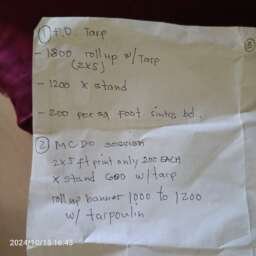 ① P.D. Tarp
- 1800 roll up w/ Tarp
(2x5)
- 1200 x stand
- 200 per sq foot sintra bd.
② MCDO session
2x5 ft print only 200 EACH
x stand 600 w/ tarp
roll up banner 1000 to 1200
w/ tarpoulin
2024/10/15 16:45